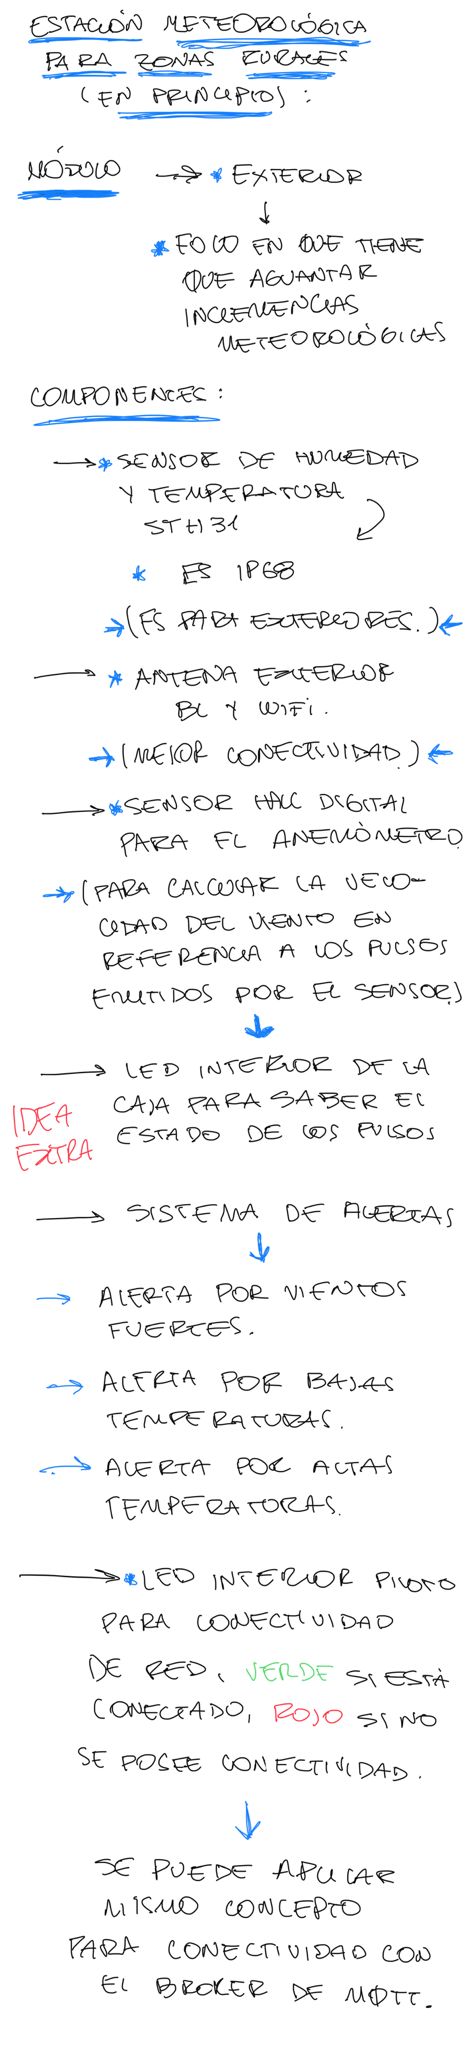 ESTACIÓN METEOROLÓGICA
PARA ZONAS RURALES
(EN PRINCIPIO) :
MÓDULO → * EXTERIOR
↓
* FOCO EN QUE TIENE
QUE AGUANTAR
INCLEMENCIAS
METEOROLÓGICAS
COMPONENTES :
→ * SENSOR DE HUMEDAD
Y TEMPERATURA
STH31
* ES IP68
→ (ES PARA EXTERIORES.) ←
→ * ANTENA EXTERIOR
BL Y WIFI.
→ (MEJOR CONECTIVIDAD.) ←
→ * SENSOR HALL DIGITAL
PARA EL ANEMÓMETRO
→ (PARA CALCULAR LA VELO-
CIDAD DEL VIENTO EN
REFERENCIA A LOS PULSOS
EMITIDOS POR EL SENSOR)
↓
→ LED INTERIOR DE LA
CAJA PARA SABER EL
ESTADO DE LOS PULSOS
IDEA
EXTRA
→ SISTEMA DE ALERTAS
↓
→ ALERTA POR VIENTOS
FUERTES.
→ ALERTA POR BAJAS
TEMPERATURAS.
→ ALERTA POR ALTAS
TEMPERATURAS.
→ * LED INTERIOR PILOTO
PARA CONECTIVIDAD
DE RED, VERDE SI ESTÁ
CONECTADO, ROJO SI NO
SE POSEE CONECTIVIDAD.
↓
SE PUEDE APLICAR
MISMO CONCEPTO
PARA CONECTIVIDAD CON
EL BROKER DE MQTT.